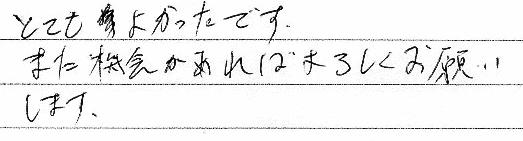 とてもよかったです.
また機会があればよろしくお願い
します.